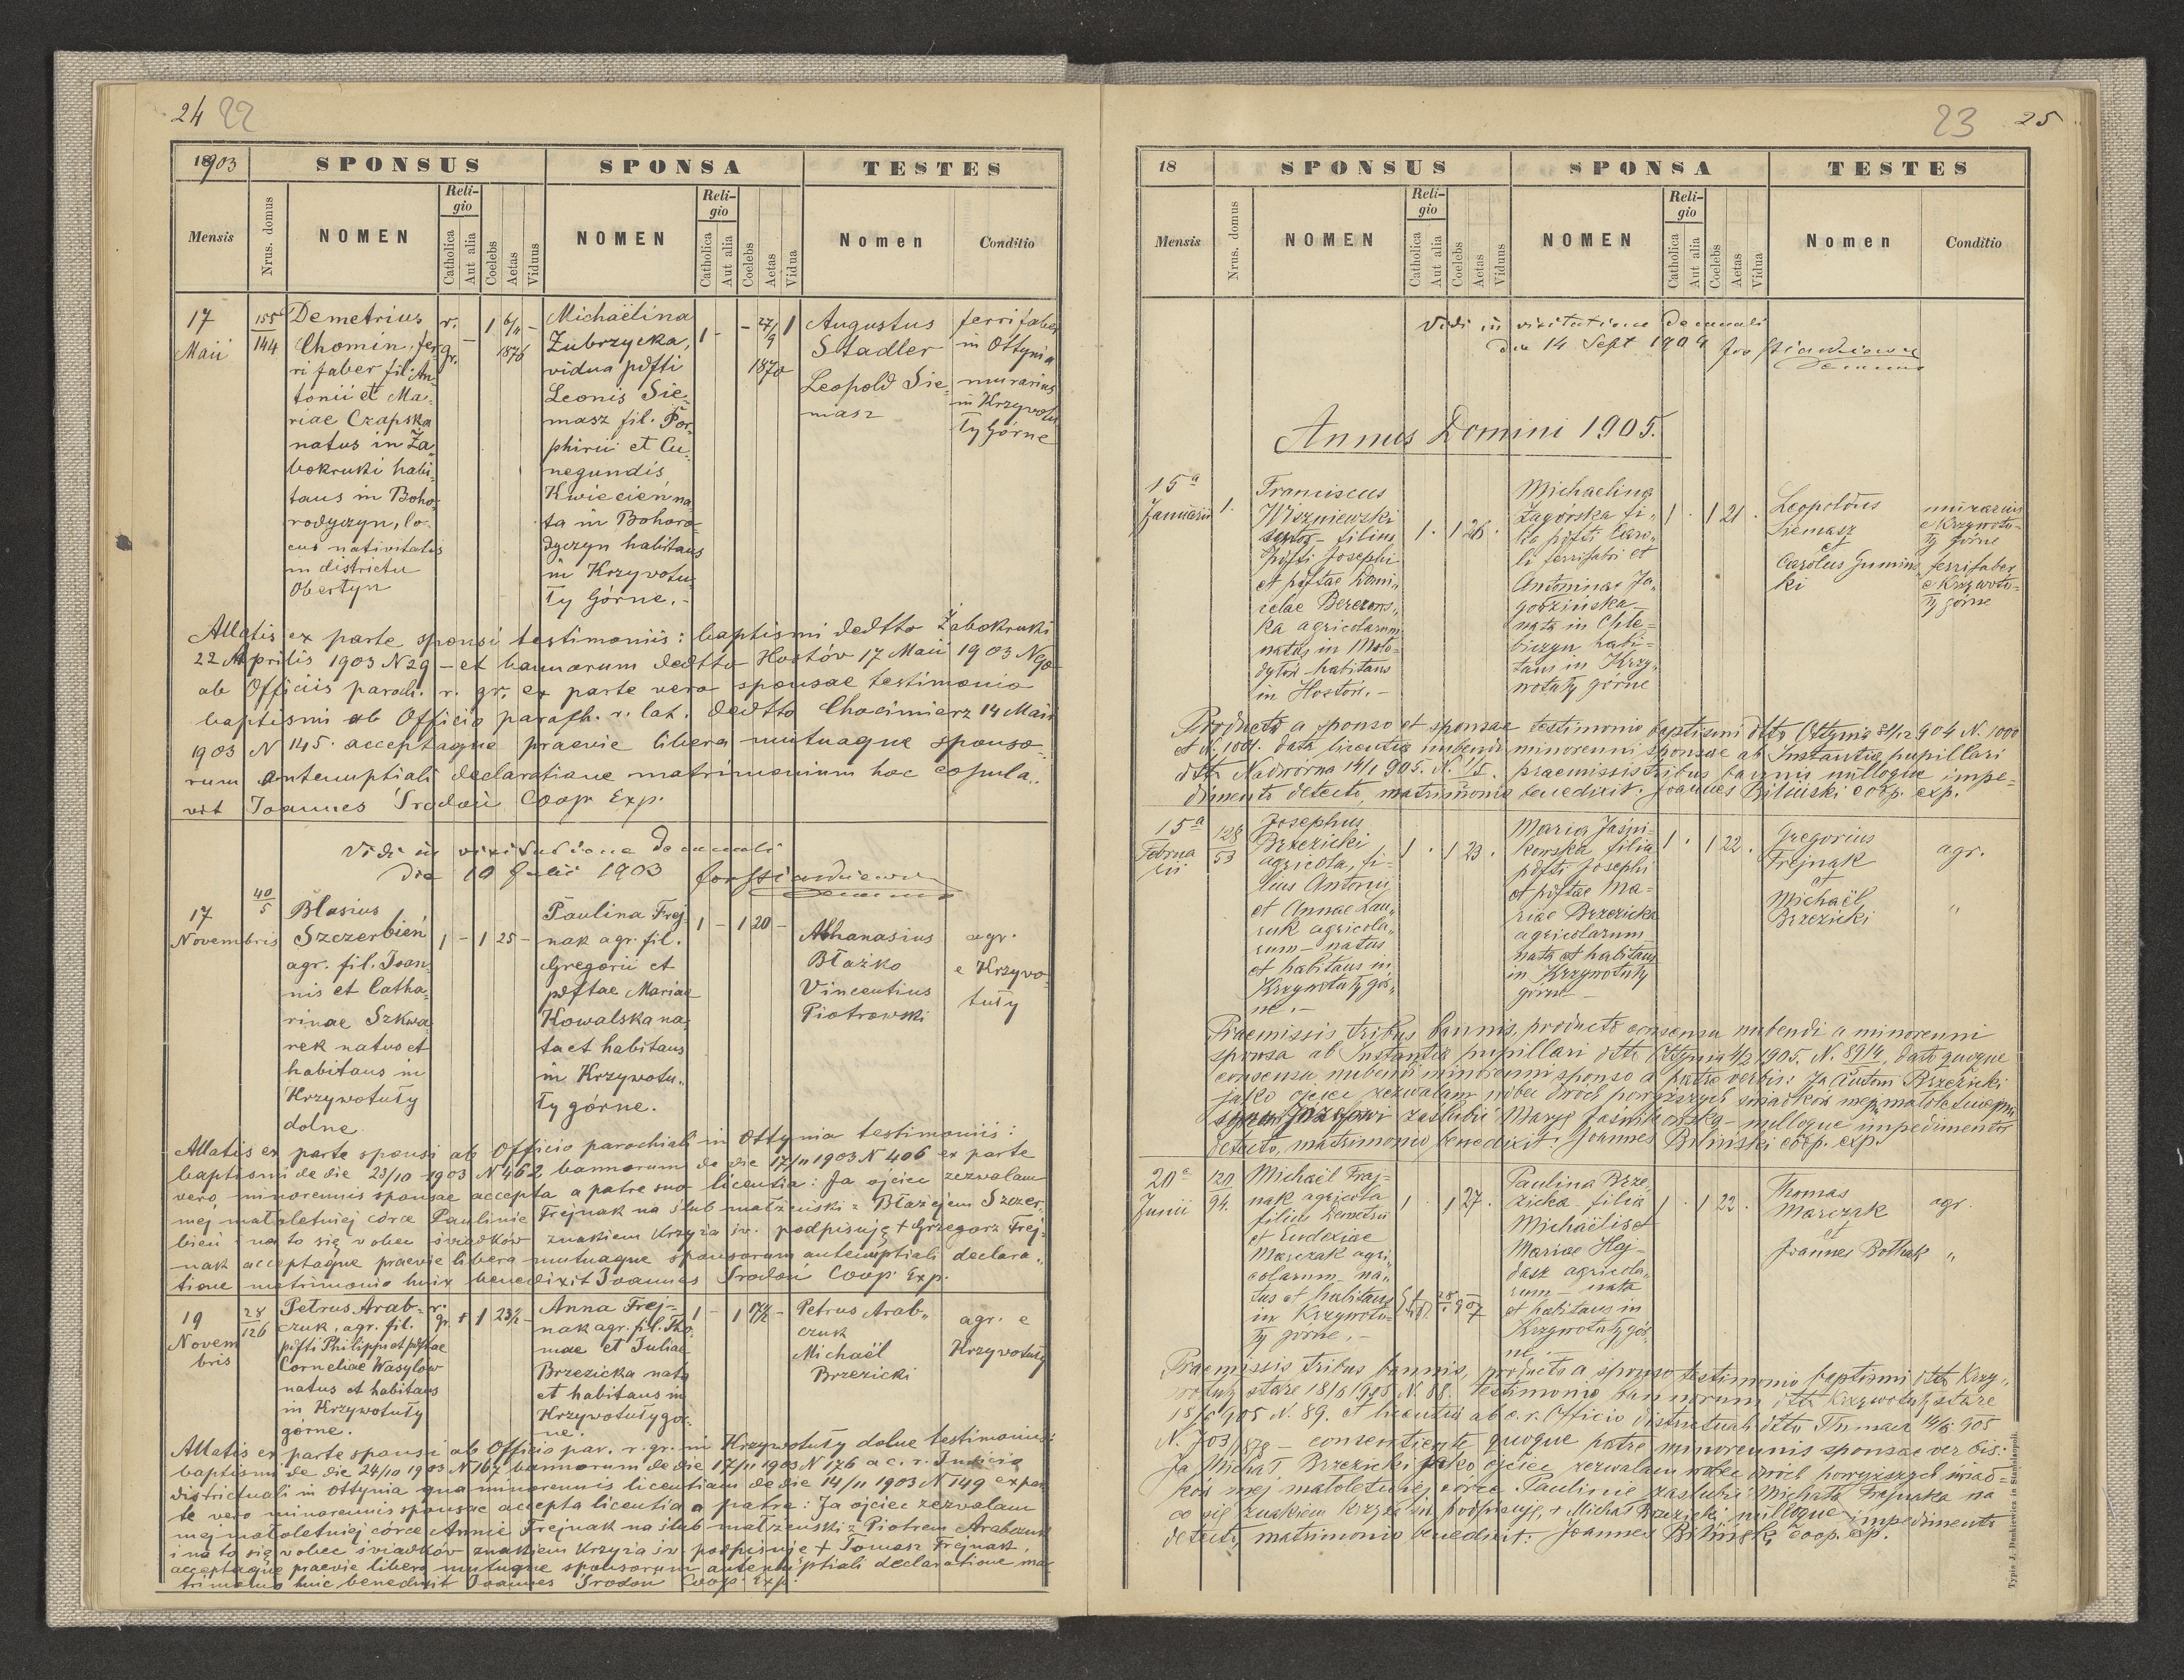 24 22
1903 SPONSUS SPONSA TESTES
Mensis Nrus. domus NOMEN Religio Catholica Aut alia Coelebs Aetas Viduus NOMEN Religio Catholica Aut alia Coelebs Aetas Vidua Nomen Conditio
17 Maii
155/144
Demetrius
Chomin, fer
ri faber fil. An
tonii et Ma
riae Czapska
natus in Ża
bokruki habi
tans in Boho
rodyczyn, lo
cus nativitatis
in districtu
Obertyn
r. gr. - 1 6/11 1876 -
Michaëlina
Zubrzycka,
vidua pdfti
Leonis Sie
masz fil. Por
phirii et Cu
negundis
Kwiecień na
ta in Bohoro
dyczyn habitans
in Krzywotu
ły Górne.-
1 - - 27/9 1870 1
Augustus
Stadler
Leopold Sie
masz
ferri faber
in Ottynia
murarius
in Krzywotu
ły Górne
Allatis ex parte sponsi testimoniis: baptismi dedtto Żabokruki
22 Aprilis 1903 N 29 - et bannorum dedtto Hostów 17 Maii 1903 N 90
ab Officiis paroch. r. gr. ex parte vero sponsae testimonio
baptismi ab Officio paroch. r. lat. dedtto Chocimierz 14 Maii
1903 N 145. acceptaque praevie libera mutuaque sponso
rum antenuptiali declaratione matrimonium hoc copula
vit Joannes Środoń Coop Exp.
Vidi in visitatione Decanali
die 10 Julii 1903
17
Novembris
40/5
Blasius
Szczerbień
agr. fil. Joan
nis et Catha
rinae Szkwa
rek natus et
habitans in
Krzywotuły
dolne
1 - 1 25 -
Paulina Frej
nak agr. fil.
Gregorii et
pdftae Mariae
Kowalska na
ta et habitans
in Krzywotu
ły górne.
1 - 1 20 -
Athanasius
Błażko
Vincentius
Piotrowski
agr.
e Krzywo
tuły
Allatis ex parte sponsi ab Officio parochiali in Ottynia testimoniis:
baptismi de die 23/10 1903 N 462 bannorum de die 17/11 1903 N 406 ex parte
vero minorennis sponsae accepta a patre suo licentia: Ja ojciec zezwalam
mej małoletniej córce Paulinie Frejnak na ślub małżeński z Błażejem Szczer
bień i na to się wobec świadków znakiem krzyża św. podpisuję + Grzegorz Frej
nak acceptaque praevie libera mutuaque sponsorum antenuptiali declara
tione matrimonio huic benedixit Joannes Środoń Coop Exp.
19
Novem
bris
28/126
Petrus Arab
czuk, agr. fil.
pdfti Philippi et pdftae
Corneliae Wasylow
natus et habitans
in Krzywotuły
górne.
r. gr. + 1 23½ -
Anna Frej
nak agr. fil. Tho
mae et Juliae
Brzezicka nata
et habitans in
Krzywotuły gór
ne.
1 - 1 17½ -
Petrus Arab
czuk
Michaël
Brzezicki
agr. e
Krzywotuły
Allatis ex parte sponsi ab Officio par. r. gr. in Krzywotuły dolne testimoniis:
baptismi de die 24/10 1903 N 167 bannorum de die 17/11 1903 N 176 a c. r. Judicio
districtuali in Ottynia qua minorennis licentiam de die 14/11 1903 N 149 ex par
te vero minorennis sponsae accepta licentia a patre: Ja ojciec zezwalam
mej małoletniej córce Annie Frejnak na ślub małżeński z Piotrem Arabczuk
i na to się wobec świadków znakiem krzyża św. podpisuję + Tomasz Frejnak,
acceptaque praevie libera mutuaque sponsorum antenuptiali declaratione ma
trimonio huic benedixit Joannes Środoń Coop Exp.
23 25
18 SPONSUS SPONSA TESTES
Mensis Nrus. domus NOMEN Religio Catholica Aut alia Coelebs Aetas Viduus NOMEN Religio Catholica Aut alia Coelebs Aetas Vidua Nomen Conditio
Vidi in visitatione Decanali
die 14 Sept 1904
Annus Domini 1905.
15a
Januarii
1.
Franciscus
Wiszniewski
filius
pdfti Josephi
et pdftae Domi
celae Berezows
ka agricolarum
natus in Moło
dyłów habitans
in Hostów.-
1 . 1 26 .
Michaelina
Zagórska fi
lia pdfti Caro
li ferrifabri et
Antoninae Ja
godzińska
nata in Chle
biczyn habi
tans in Krzy
wotuły górne
1 . 1 21 .
Leopoldus
Siemasz
et
Carolus Gumińs
ki
murarius
e Krzywotu
ły górne
ferrifaber
e Krzywotu
ły górne
Producto a sponso et sponsae testimonio baptismi dtto Ottynia 31/12 904 N. 1000
et N. 1001. data licentia nubendi minorenni sponsae ab Instantia pupillari
dtto Nadwórna 14/1 905. N. 1/5. praemissis tribus bannis nulloque impe
dimento detecto, matrimonio benedixit. Joannes Biliński coop. exp.
15a
Februa
rii
128/53
Josephus
Brzezicki
agricola, fi
lius Antonii
et Annae Lau
ruk agricola
rum - natus
et habitans in
Krzywotuły gór
ne.-
1 . 1 23 .
Maria Jaśni
kowska filia
pdfti Josephi
et pdftae Ma
riae Brzezicka
agricolarum
nata et habitans
in Krzywotuły
górne
1 . 1 22 .
Gregorius
Frejnak
et
Michaël
Brzezicki
agr.
"
Praemissis tribus bannis, producto consensu nubendi a minorenni
sponsa ab Instantia pupillari dtto Ottynia 4/2 1905. N. 89/4, dato quoque
consensu nubendi minorenni sponso a patre verbis: Ja Antoni Brzezicki
jako ojciec zezwalam wobec dwóch powyższych świadków mej małoletniemu
synowi Józefowi zaślubić Maryę Jaśnikowską - nulloque impedimento
detecto, matrimonio benedixit. Joannes Biliński coop. exp.
20a
Junii
120
94.
Michaël Frej
nak agricola
filius Demetrii
et Eudoxiae
Marczak agri
colarum na
tus et habitans
in Krzywotu
ły górne.-
1 . 1 27 .
Paulina Brze
zicka filia
Michaëlis et
Mariae Haj
dasz agricola
rum nata
et habitans in
Krzywotuły gór
ne.
1 . 1 22 .
Thomas
Marczak
et
Joannes Bothak
agr.
"
Praemissis tribus bannis, producto a sponso testimonio baptismi dtto Krzy
wotuły stare 18/6 1905 N. 88. testimonio bannorum dtto Krzywotuły stare
18/6 905 N. 89. et licentia ab c. r. Officio districtuali dtto Tłumacz 14/6 905
N. 703/1878 - consentiente quoque patre minorennis sponsae verbis:
Ja Michał Brzezicki jako ojciec zezwalam wobec dwóch powyższych świad
ków mej małoletniej córce Paulinie zaślubić Michała Frejnaka na
co się znakiem krzyża św. podpisuję + Michał Brzezicki, nulloque impedimento
detecto, matrimonio benedixit: Joannes Biliński coop. exp.
Typis J. Dankiewicz in Stanislaopoli.